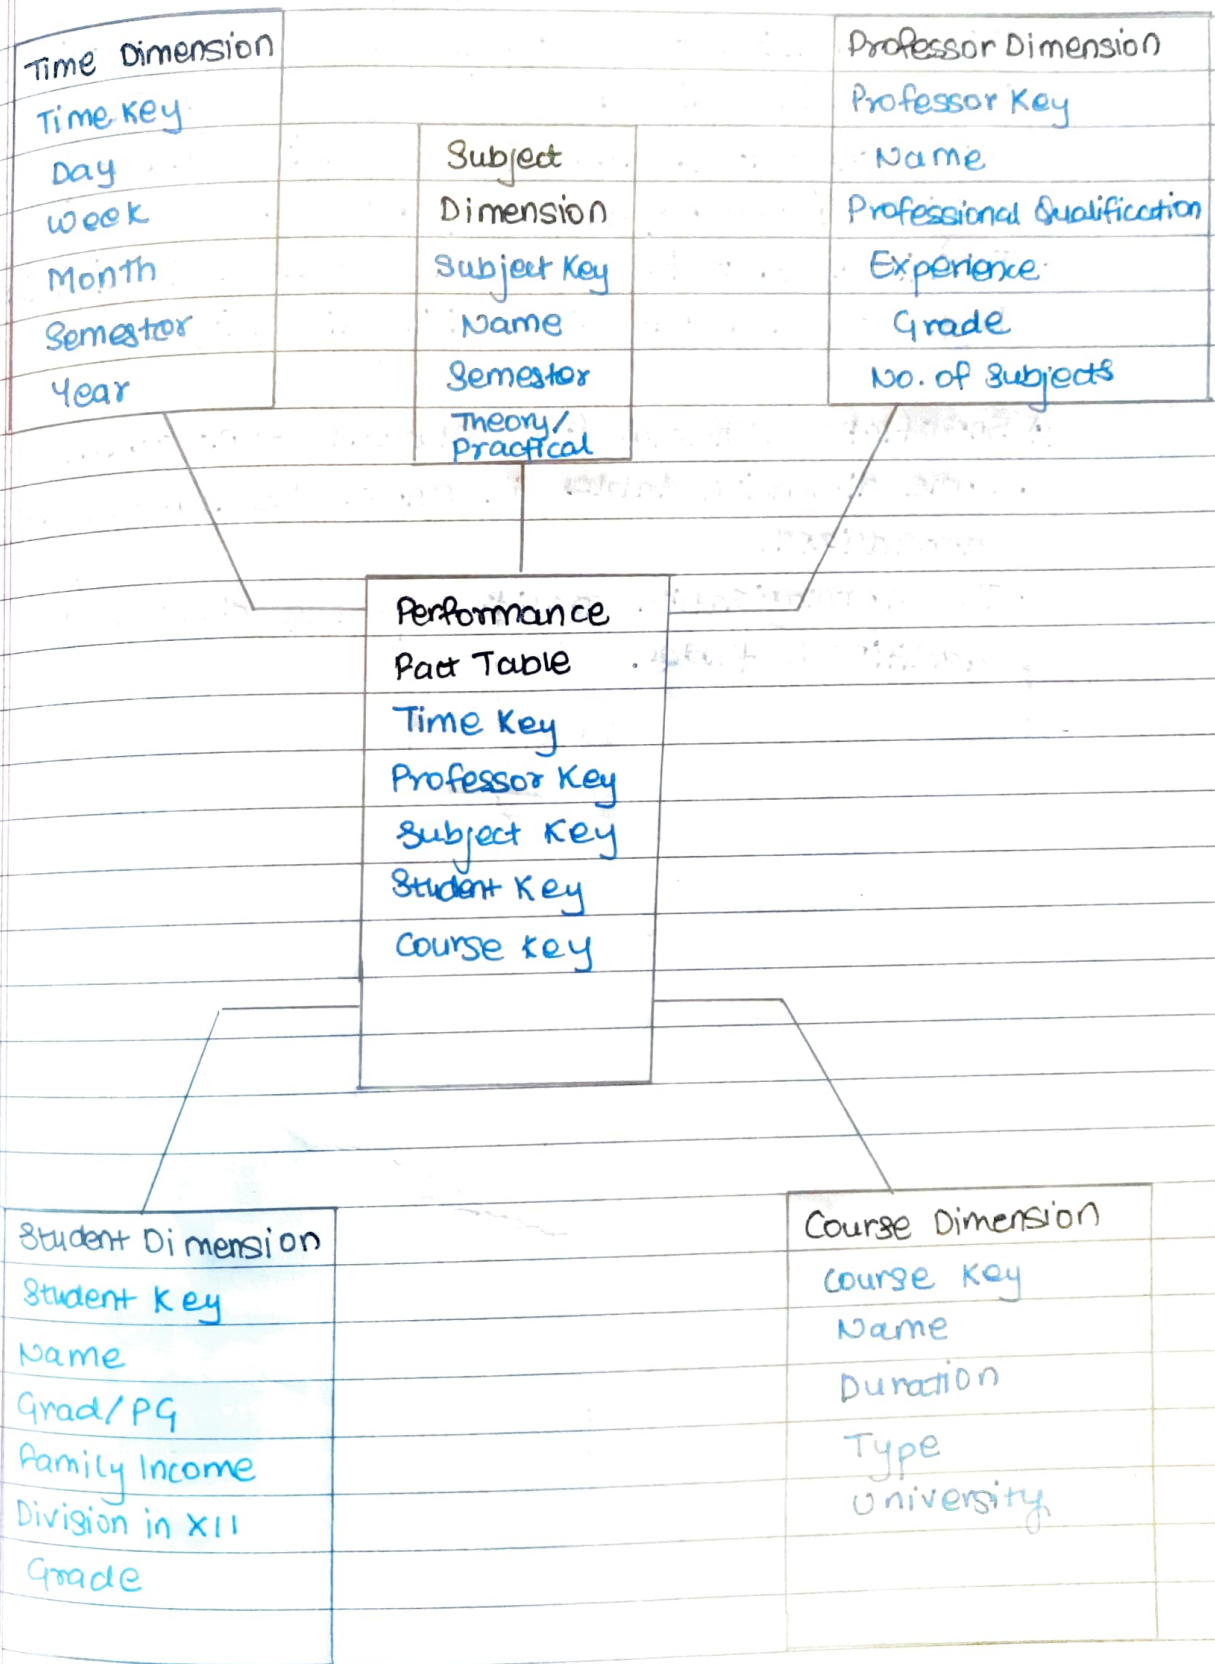 Time Dimension
Time Key
Day
Week
Month
Semestor
Year
Subject
Dimension
Subject Key
Name
Semestor
Theory/
Practical
Professor Dimension
Professor Key
Name
Professional Qualification
Experience
Grade
No. of Subjects
Performance
Fact Table
Time Key
Professor Key
Subject Key
Student Key
Course Key
Student Dimension
Student Key
Name
Grad/PG
Family Income
Division in XII
Grade
Course Dimension
Course Key
Name
Duration
Type
University